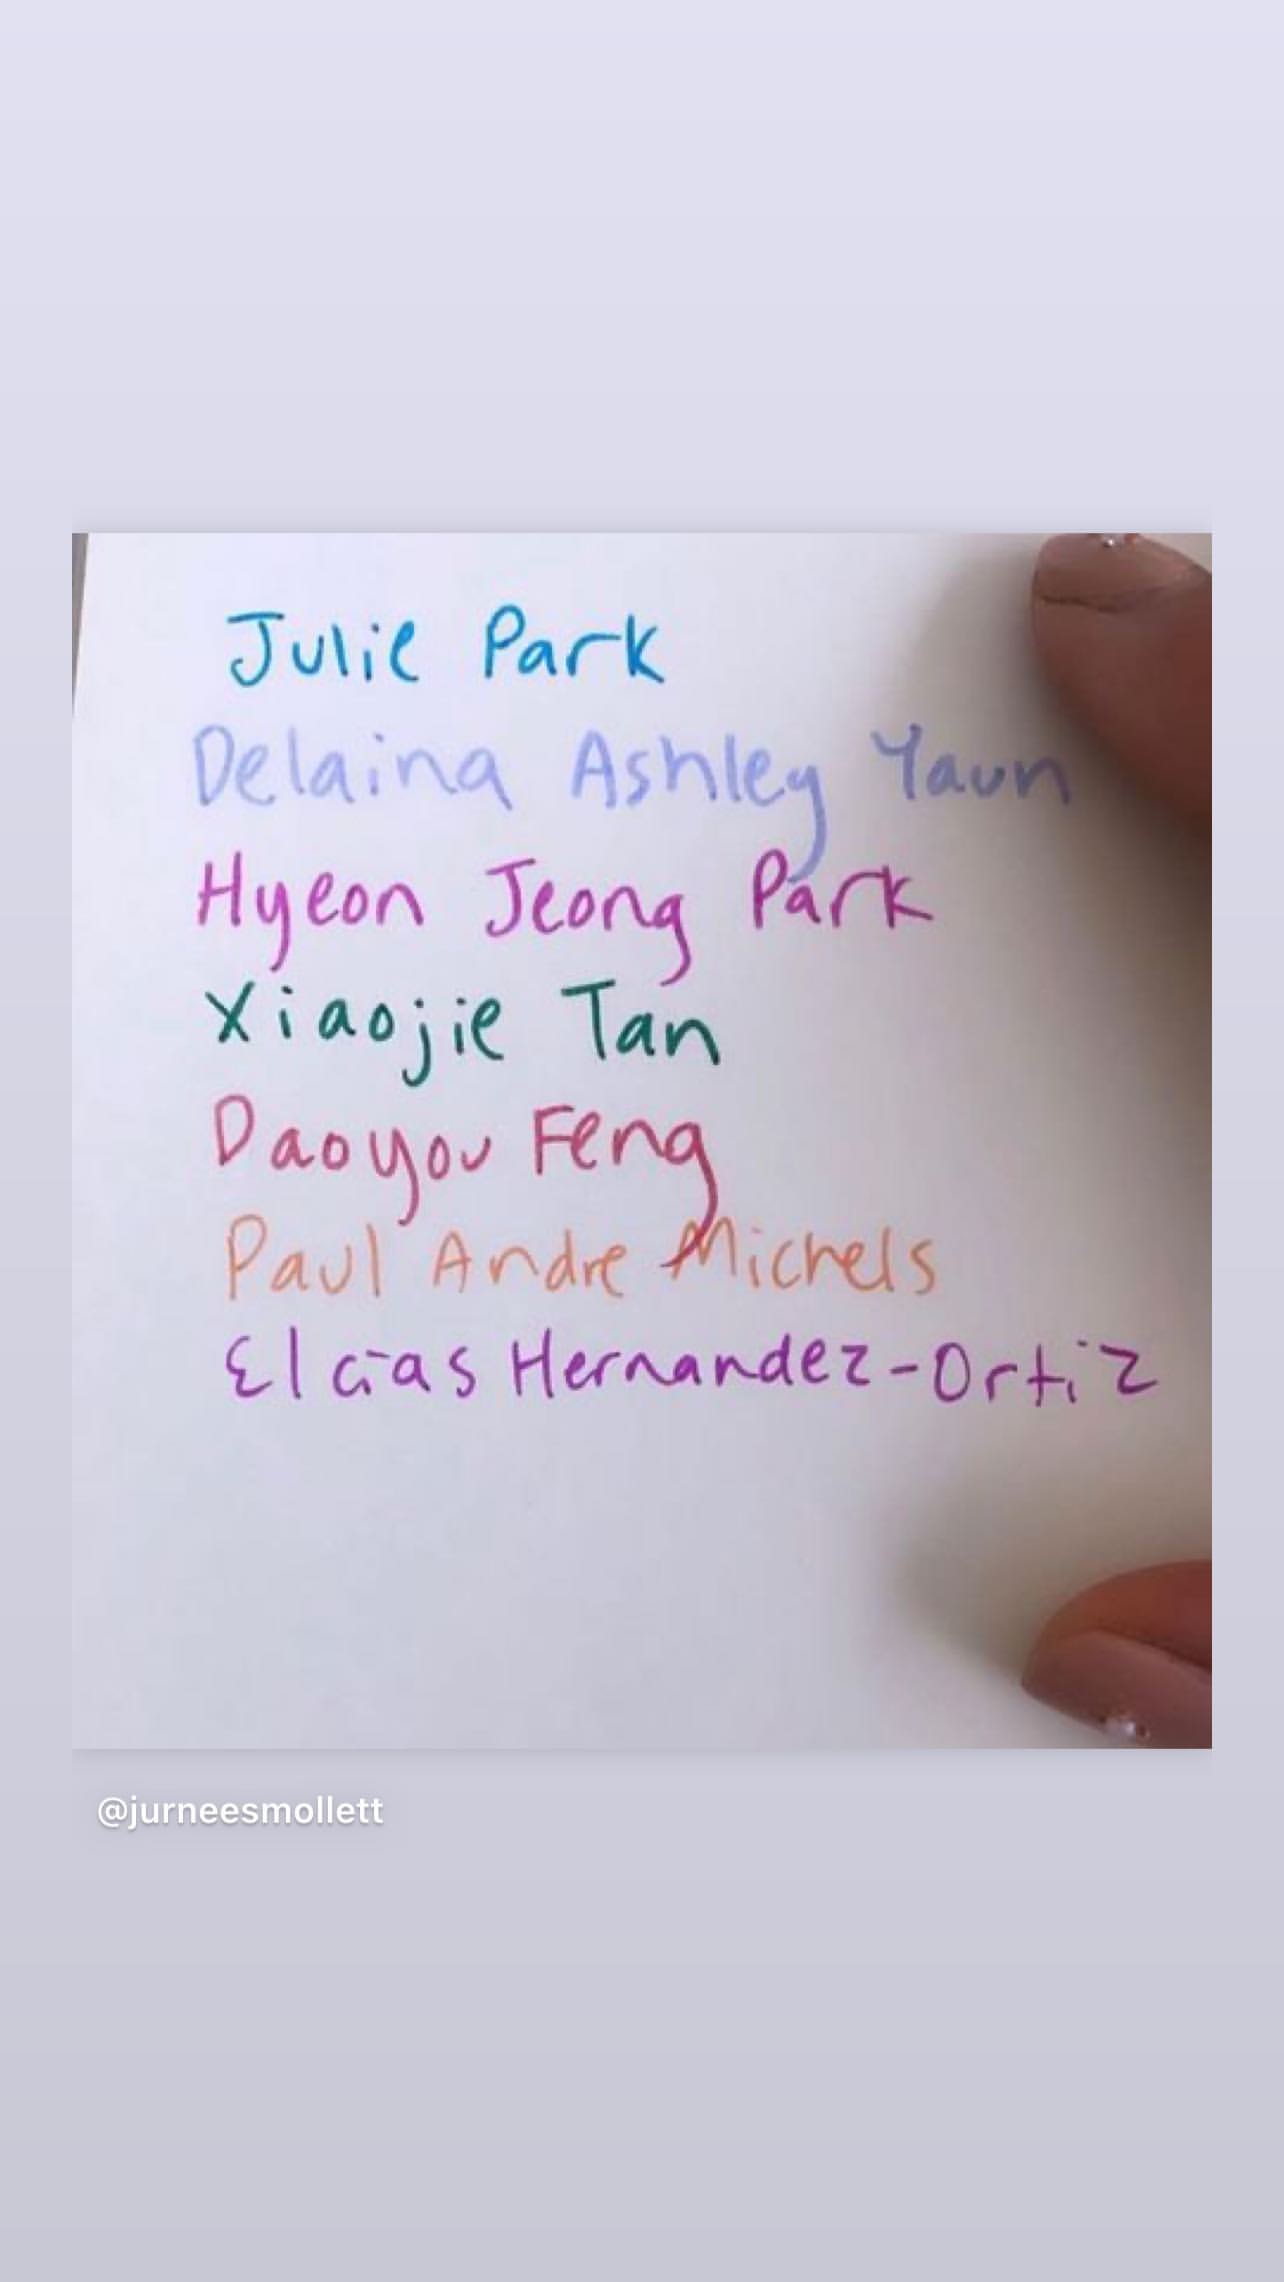 Julie Park
Delaina Ashley Yaun
Hyeon Jeong Park
Xiaojie Tan
Daoyou Feng
Paul Andre Michels
Elcias Hernandez-Ortiz
@jurneesmollett